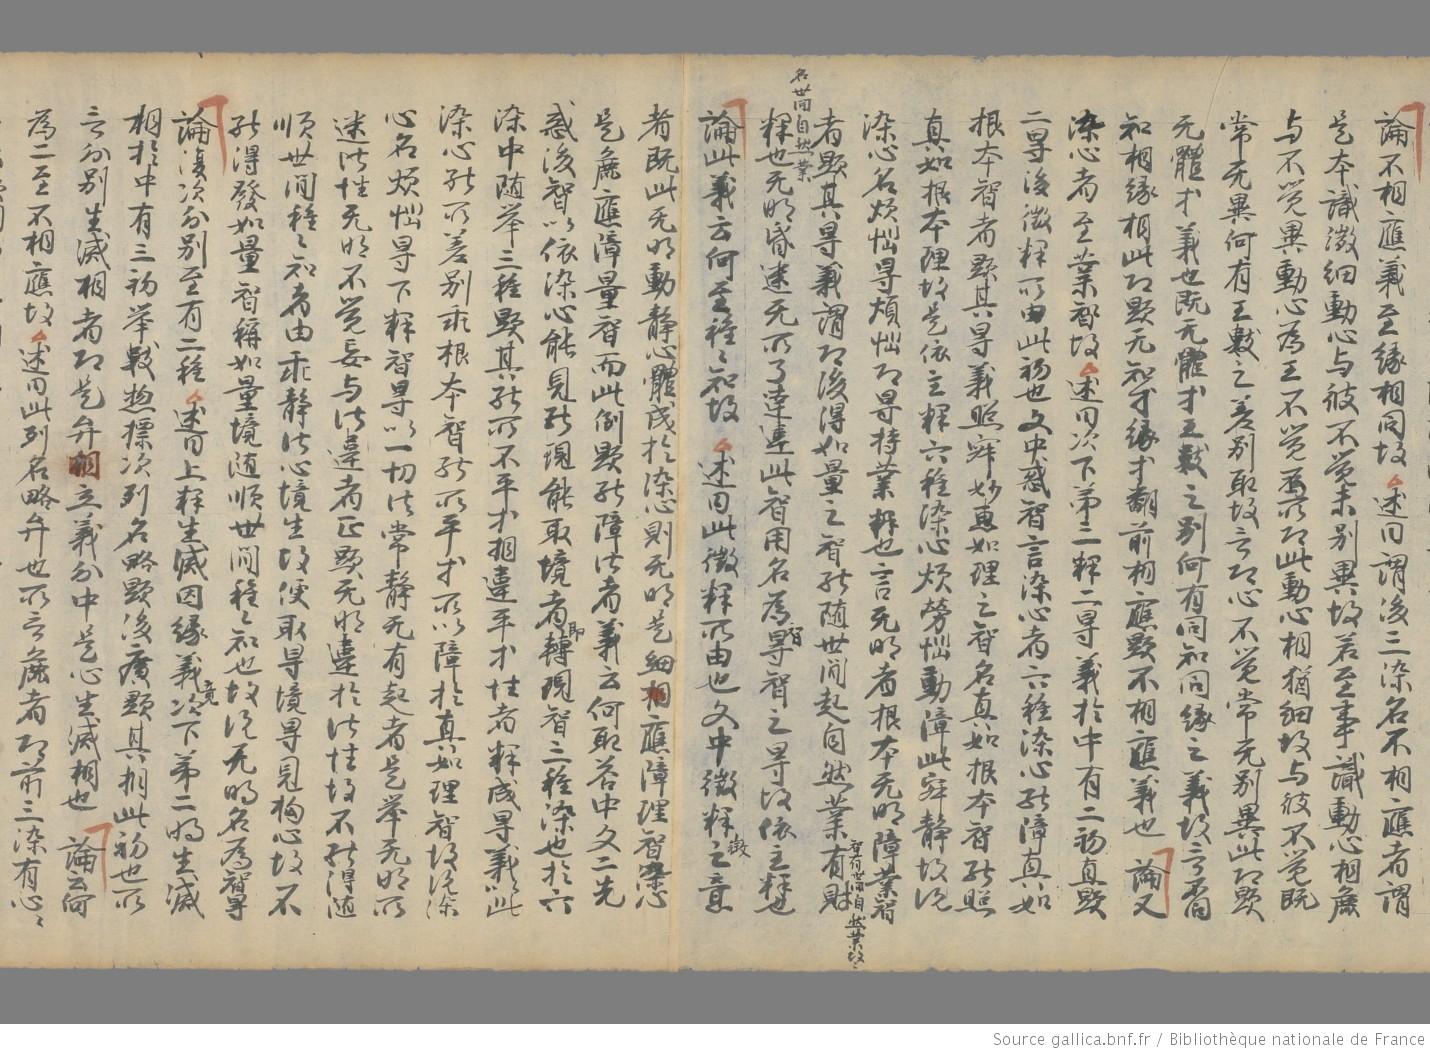 論不相應義至緣相同故述曰謂後三染名不相應者謂
是本識微細動心与彼不覺未別異故若至事識動心相麁
与不覺異動心為王不覺為所即此動心相猶細故与彼不覺既
常无異何有王數之差別取故言即心不覺常无別異此即顯
无體才義也既无體才王數之別何有同知同緣之義故言不同
知相緣相此即顯无知才緣才翻前相應顯不相應義也論又
染心者至業智故述曰次下第二釋二㝵義於中有二初直顯
二㝵後徵釋所由此初也文中惑智言染心者六種染心能障真如
根本智者顯其㝵義照寂妙惠如理之智名真如根本智能照
真如根本理故是依主釋六種染心煩勞惱動障此寂靜故說
染心名煩惱㝵煩惱即㝵持業釋也言无明者根本无明障業智
者顯其㝵義謂即後得如量之智能隨世間起自然業有財
名世間自然業
智有世間自然業故
釋也无明昏迷无所了達違此智用名為智㝵智之㝵故依主釋也
論此義云何至種〻知故述曰此徵釋所由也文中徵釋之意
徵
者既此无明動靜心體成於染心則无明是細相應障理智染心
是麁應障量智而此倒顯能障法者義云何取答中文二先
惑後智以依染心能見能現能取境者即轉現智二種染也於六
染中随舉三種顯其能所不平才相違平才性者釋成㝵義以此
染心能所差別乖根本智能所平才所以障於真如理智故說染
心名煩惱㝵下釋智㝵以一切法常靜无有起者是舉无明所
迷法性无明不覺妄与法違者正顯无明違於法性故不能得随
順世間種〻知者由乖靜法心境生故便取㝵境㝵見拘心故不
能得發如量智稱如量境随順世間種〻知也故說无明名為智㝵
論復次分別至有二種述曰上釋生滅因緣義竟次下第二明生滅
相於中有三初舉數惣摽次列名略顯後廣顯其相此初也所
言分別生滅相者即是弁立義分中是心生滅相也論云何
為二至不相應故述曰此列名略弁也所言麁者即前三染有心〻
Source gallica.bnf.fr / Bibliothèque nationale de France